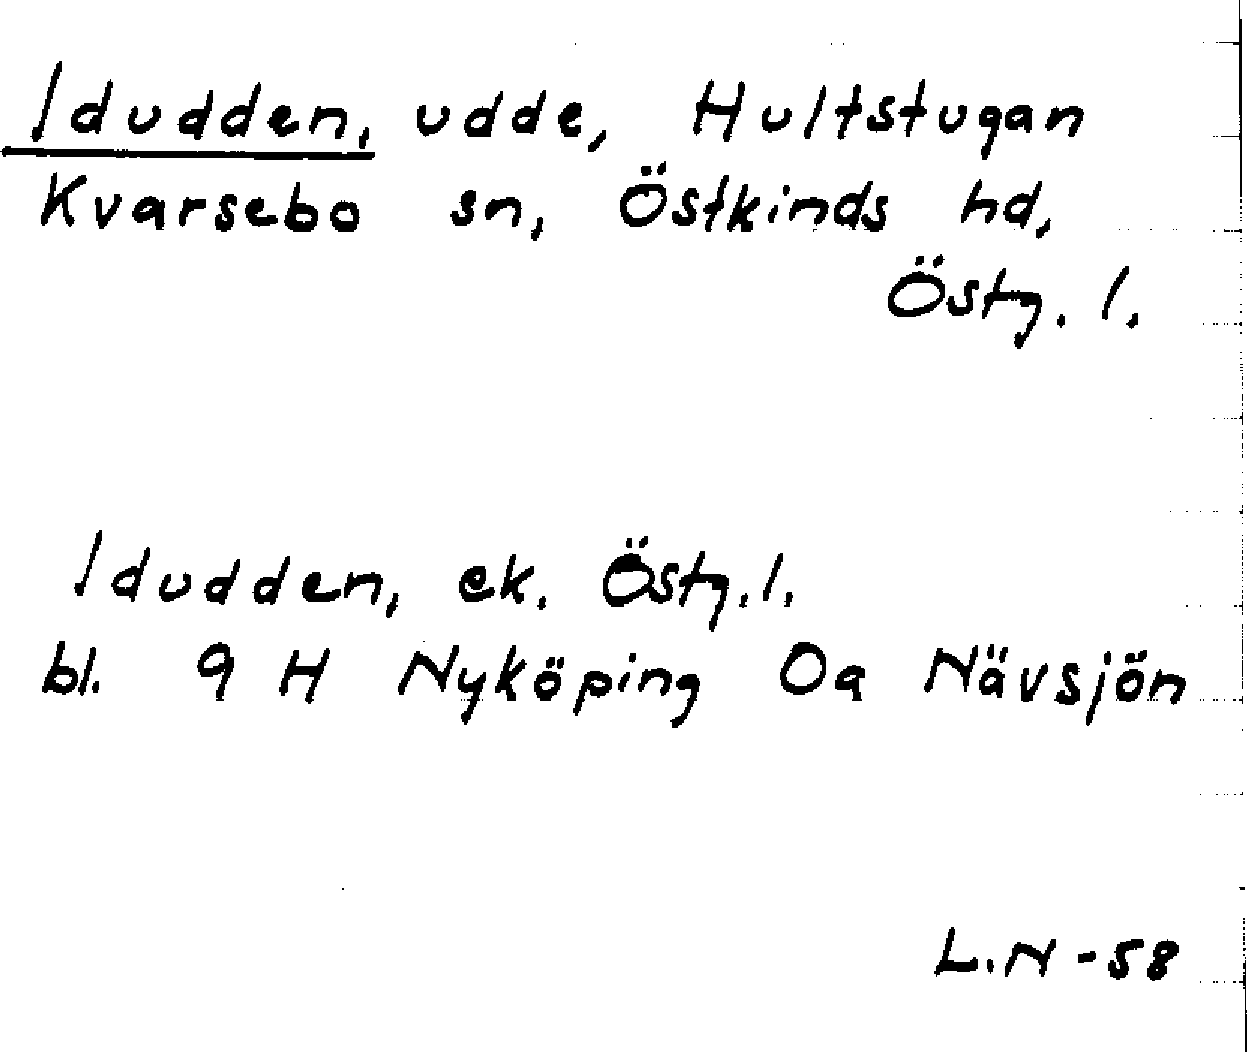 Idudden, udde, Hultstugan
Kvarsebo sn, Östkinds hd,
Östg. l.
Idudden, ek. Östg. l.
bl. 9 H Nyköping 0a Nävsjön
L.N -58